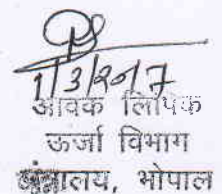 1/3/2017
आवक लिपिक
ऊर्जा विभाग
मंत्रालय, भोपाल